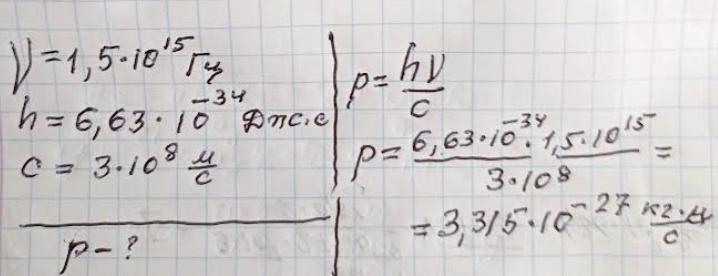 ν = 1,5·10¹⁵ Гц
h = 6,63·10⁻³⁴ Дж·с
c = 3·10⁸ м/с
p – ?
p = hν/c
p = 6,63·10⁻³⁴·1,5·10¹⁵/3·10⁸ =
= 3,315·10⁻²⁷ кг·м/с